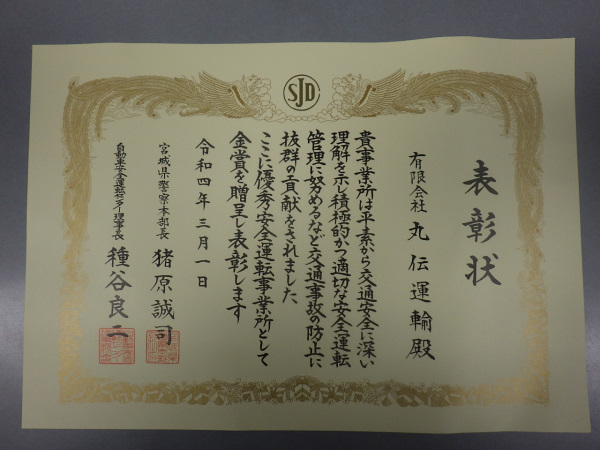 SJD
表彰状
有限会社 丸伝運輸殿
貴事業所は平素から交通安全に深い
理解を示し積極的かつ適切な安全運転
管理に努めるなど交通事故の防止に
抜群の貢献をされました
ここに優秀安全運転事業所として
金賞を贈呈し表彰します
令和四年三月一日
宮城県警察本部長 猪原誠司
自動車安全運転センター理事長 種谷良二